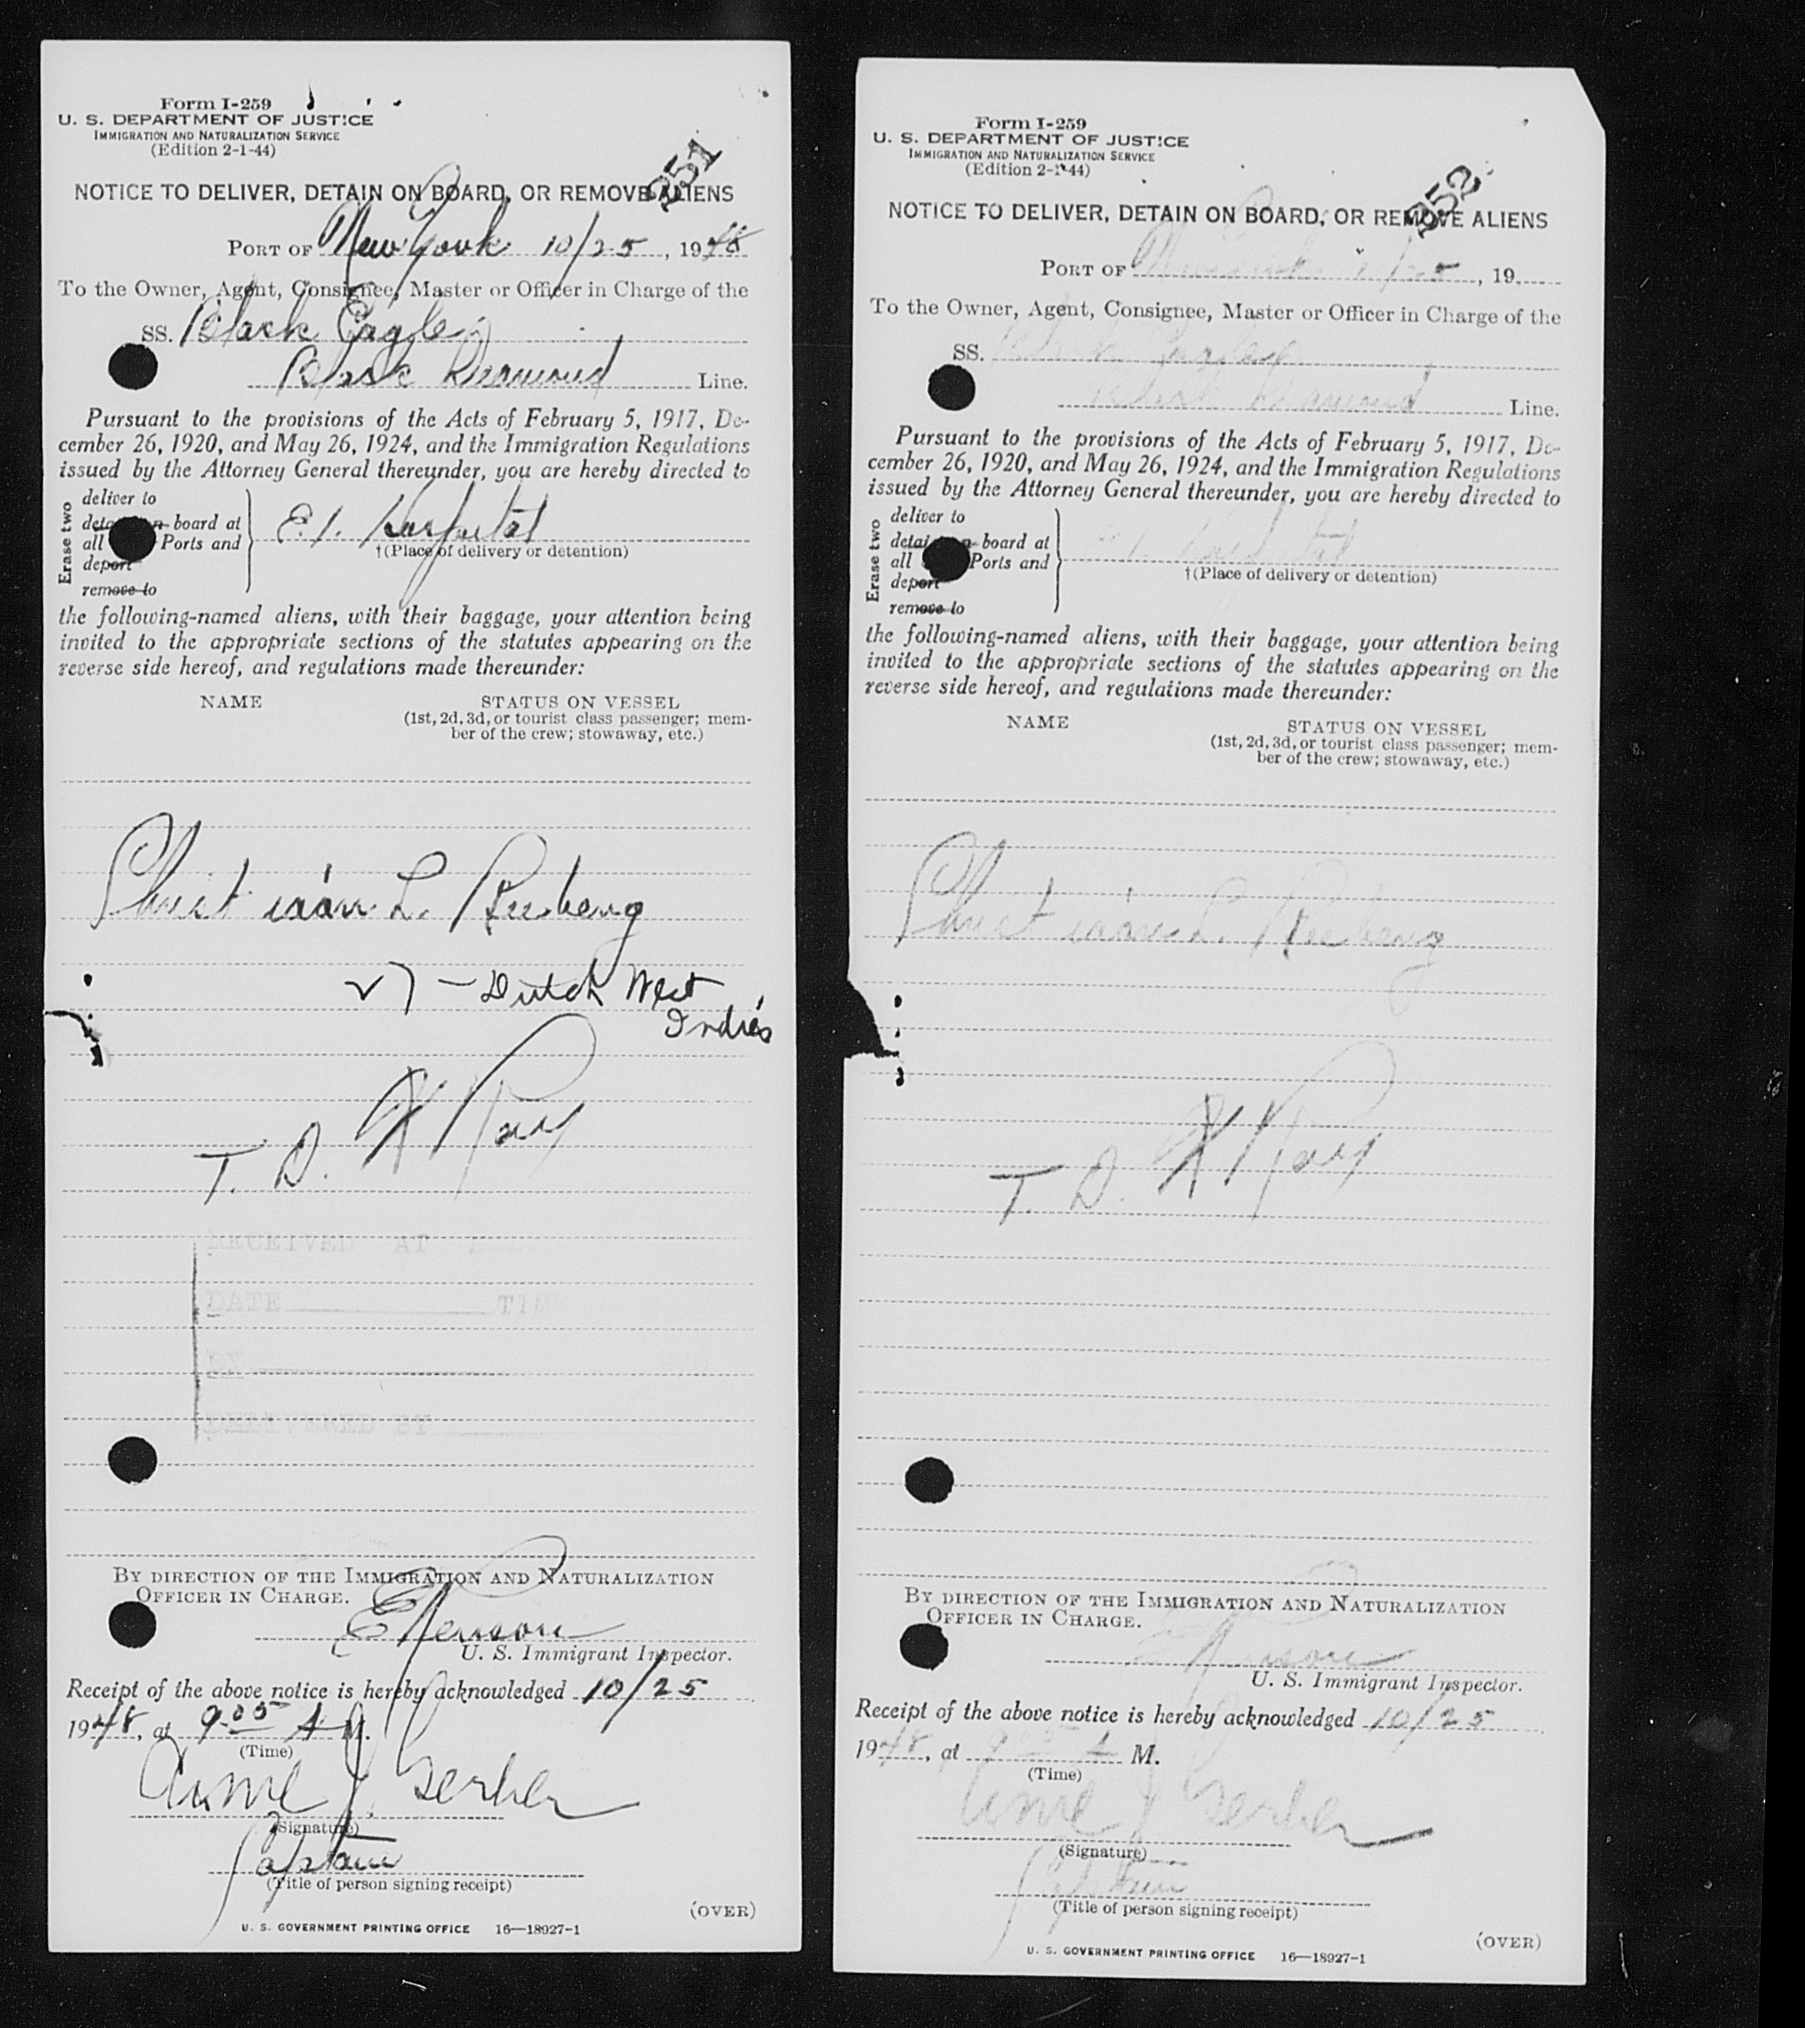 Form I-259
U. S. DEPARTMENT OF JUSTICE
IMMIGRATION AND NATURALIZATION SERVICE
(Edition 2-1-44)
251
NOTICE TO DELIVER, DETAIN ON BOARD, OR REMOVE ALIENS
PORT OF New York 10/25, 1948
To the Owner, Agent, Consignee, Master or Officer in Charge of the
SS. Black Eagle
Black Diamond Line.
Pursuant to the provisions of the Acts of February 5, 1917, De-
cember 26, 1920, and May 26, 1924, and the Immigration Regulations
issued by the Attorney General thereunder, you are hereby directed to
Erase two
deliver to
board at
all Ports and
deport
remove to
E. I. Hospital
†(Place of delivery or detention)
the following-named aliens, with their baggage, your attention being
invited to the appropriate sections of the statutes appearing on the
reverse side hereof, and regulations made thereunder:
NAME STATUS ON VESSEL
(1st, 2d, 3d, or tourist class passenger; mem-
ber of the crew; stowaway, etc.)
Christiaan L.
27 - Dutch West
Indies
T. D. X Ray
RECEIVED AT
DATE TIME
BY
DELIVERED BY
BY DIRECTION OF THE IMMIGRATION AND NATURALIZATION
OFFICER IN CHARGE.
U. S. Immigrant Inspector.
Receipt of the above notice is hereby acknowledged 10/25
1948, at 9 05 A M.
(Time)
J. Gerber
(Signature)
Captain
(Title of person signing receipt)
(OVER)
U. S. GOVERNMENT PRINTING OFFICE 16—18927-1
Form I-259
U. S. DEPARTMENT OF JUSTICE
IMMIGRATION AND NATURALIZATION SERVICE
(Edition 2-1-44)
252
NOTICE TO DELIVER, DETAIN ON BOARD, OR REMOVE ALIENS
PORT OF New York 10/25, 19
To the Owner, Agent, Consignee, Master or Officer in Charge of the
SS. Black Eagle
Black Diamond Line.
Pursuant to the provisions of the Acts of February 5, 1917, De-
cember 26, 1920, and May 26, 1924, and the Immigration Regulations
issued by the Attorney General thereunder, you are hereby directed to
Erase two
deliver to
board at
all Ports and
deport
remove to
E. I. Hospital
†(Place of delivery or detention)
the following-named aliens, with their baggage, your attention being
invited to the appropriate sections of the statutes appearing on the
reverse side hereof, and regulations made thereunder:
NAME STATUS ON VESSEL
(1st, 2d, 3d, or tourist class passenger; mem-
ber of the crew; stowaway, etc.)
Christiaan L.
T. D. X Ray
BY DIRECTION OF THE IMMIGRATION AND NATURALIZATION
OFFICER IN CHARGE.
U. S. Immigrant Inspector.
Receipt of the above notice is hereby acknowledged 10/25
1948, at 9 05 A M.
(Time)
J. Gerber
(Signature)
Captain
(Title of person signing receipt)
(OVER)
U. S. GOVERNMENT PRINTING OFFICE 16—18927-1